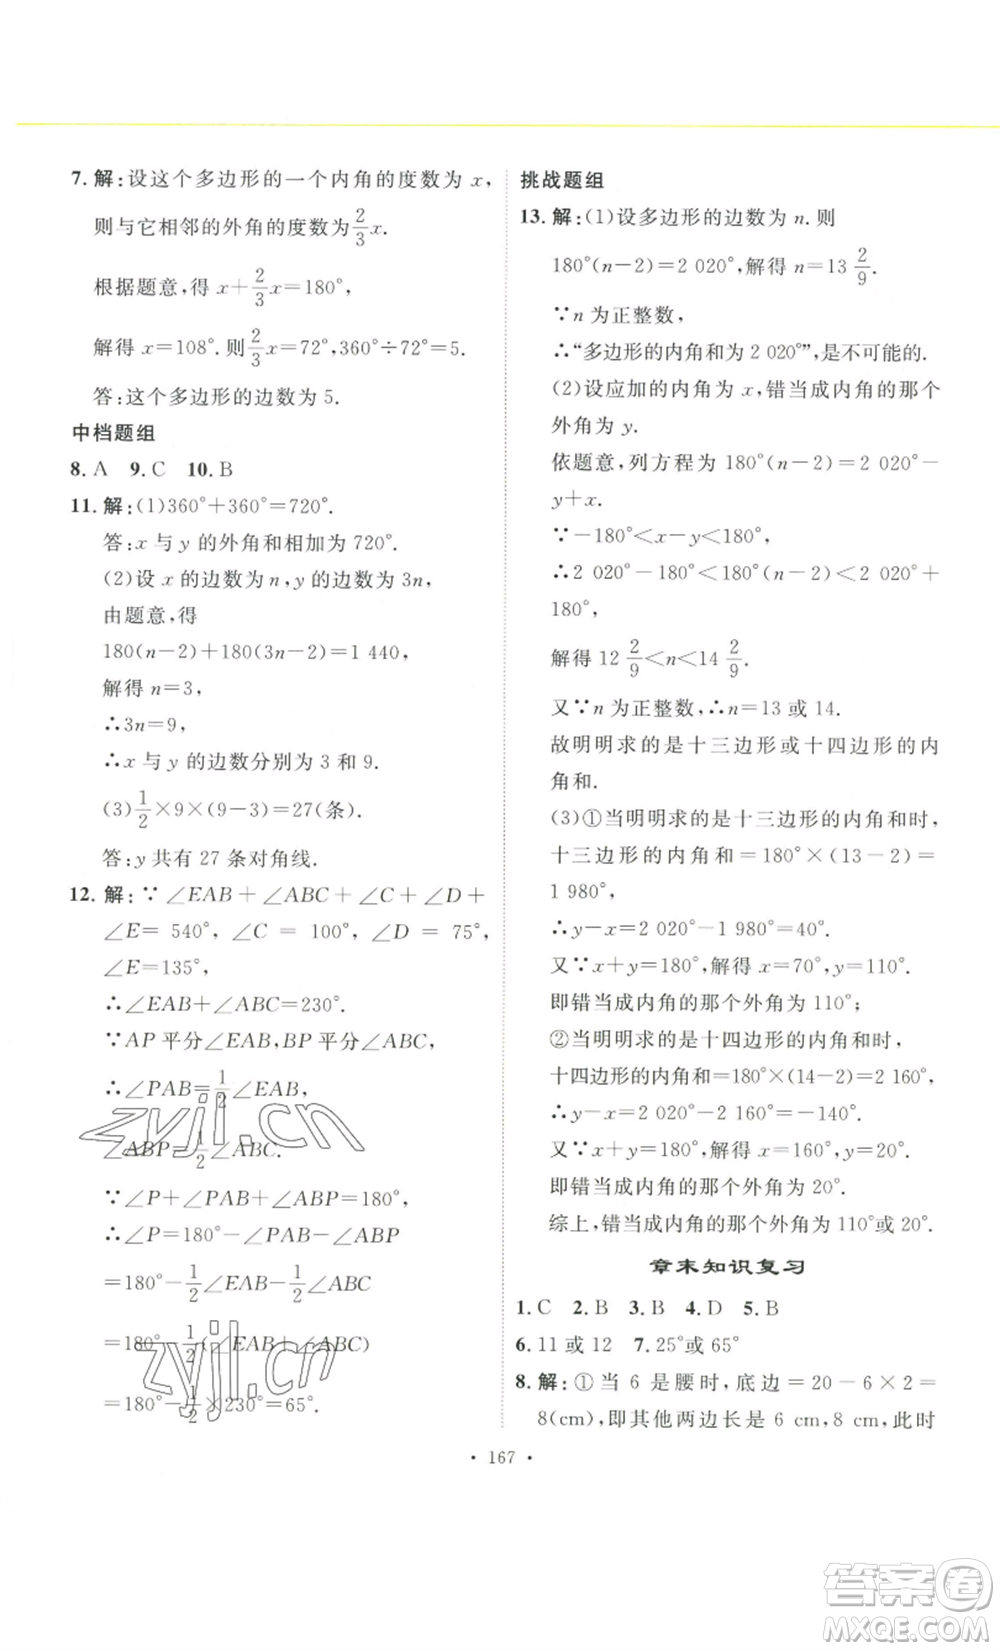 7. 解:设这个多边形的一个内角的度数为 x,
则与它相邻的外角的度数为 2/3 x.
根据题意,得 x+2/3 x=180°,
解得 x=108°.则 2/3 x=72°,360°÷72°=5.
答:这个多边形的边数为 5.
中档题组
8. A 9. C 10. B
11. 解:(1)360°+360°=720°.
答:x 与 y 的外角和相加为 720°.
(2)设 x 的边数为 n,y 的边数为 3n,
由题意,得
180(n-2)+180(3n-2)=1 440,
解得 n=3,
∴3n=9,
∴x 与 y 的边数分别为 3 和 9.
(3)1/2×9×(9-3)=27(条).
答:y 共有 27 条对角线.
12. 解:∵∠EAB+∠ABC+∠C+∠D+
∠E= 540°, ∠C = 100°, ∠D = 75°,
∠E=135°,
∴∠EAB+∠ABC=230°.
∵AP 平分∠EAB,BP 平分∠ABC,
∴∠PAB=1/2∠EAB,
∠ABP=1/2∠ABC.
∵∠P+∠PAB+∠ABP=180°,
∴∠P=180°-∠PAB-∠ABP
=180°-1/2∠EAB-1/2∠ABC
=180°-1/2(∠EAB+∠ABC)
=180°-1/2×230°=65°.
挑战题组
13. 解:(1)设多边形的边数为 n.则
180°(n-2)=2 020°,解得 n=13 2/9.
∵n 为正整数,
∴“多边形的内角和为 2 020°”,是不可能的.
(2)设应加的内角为 x,错当成内角的那个
外角为 y.
依题意,列方程为 180°(n-2)=2 020°-
y+x.
∵-180°<x-y<180°,
∴2 020°-180°<180°(n-2)<2 020°+
180°,
解得 12 2/9<n<14 2/9.
又∵n 为正整数,∴n=13 或 14.
故明明求的是十三边形或十四边形的内
角和.
(3)①当明明求的是十三边形的内角和时,
十三边形的内角和=180°×(13-2)=
1 980°,
∴y-x=2 020°-1 980°=40°.
又∵x+y=180°,解得 x=70°,y=110°.
即错当成内角的那个外角为 110°;
②当明明求的是十四边形的内角和时,
十四边形的内角和=180°×(14-2)=2 160°,
∴y-x=2 020°-2 160°=-140°.
又∵x+y=180°,解得 x=160°,y=20°.
即错当成内角的那个外角为 20°.
综上,错当成内角的那个外角为 110°或 20°.
章末知识复习
1. C 2. B 3. B 4. D 5. B
6. 11 或 12 7. 25°或 65°
8. 解:①当 6 是腰时,底边=20-6×2=
8(cm),即其他两边长是 6 cm,8 cm,此时
• 167 •
zyjl.cn
zyjl.cn
答案圈
MXQE.COM